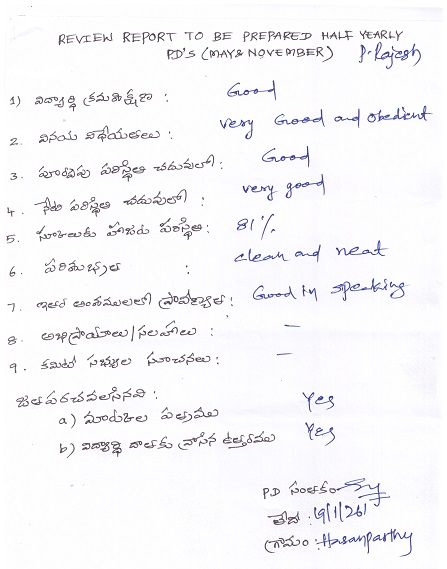 REVIEW REPORT TO BE PREPARED HALF YEARLY
PD'S (MAY & NOVEMBER) P. Rajesh
1) విద్యార్థి క్రమశిక్షణ : Good
2. వినయ విధేయతలు : very Good and obedient
3. పూర్వపు పరిస్థితి చదువులో : Good
4. నేటి పరిస్థితి చదువులో : very good
5. స్కూలుకు హాజరు పరిస్థితి: 81%
6. పరిశుభ్రత : clean and neat
7. ఇతర అంశములలో ప్రావీణ్యత : Good in speaking
8. అభిప్రాయాలు/సలహాలు : —
9. కమిటీ సభ్యుల సూచనలు: —
జతపరచవలసినవి :
a) మార్కుల పత్రము Yes
b) విద్యార్థి దాతకు వ్రాసిన ఉత్తరము Yes
PD సంతకం
తేది : 19/1/26
గ్రామం : Hasanparthy